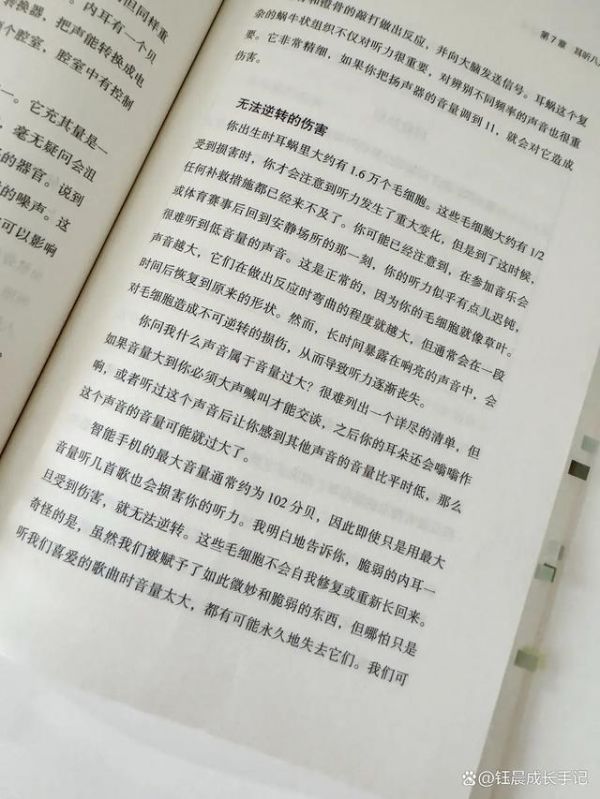 但同样重
。内耳有一个贝
转换器，把声能转换成电
个腔室，腔室中有控制
。它充其量是一
，毫无疑问会沮
的器官。说到
的噪声。这
可以影响
第7章 耳听八
和镫骨的敲打做出反应，并向大脑发送信号。耳蜗这个复
杂的蜗牛状组织不仅对听力很重要，对辨别不同频率的声音也很重
要。它非常精细，如果你把扬声器的音量调到11，就会对它造成
伤害。
无法逆转的伤害
你出生时耳蜗里大约有1.6万个毛细胞。这些毛细胞大约有1/2
受到损害时，你才会注意到听力发生了重大变化，但是到了这时候，
任何补救措施都已经来不及了。你可能已经注意到，在参加音乐会
或体育赛事后回到安静场所的那一刻，你的听力似乎有点儿迟钝，
很难听到低音量的声音。这是正常的，因为你的毛细胞就像草叶。
声音越大，它们在做出反应时弯曲的程度就越大，但通常会在一段
时间后恢复到原来的形状。然而，长时间暴露在响亮的声音中，会
对毛细胞造成不可逆转的损伤，从而导致听力逐渐丧失。
你问我什么声音属于音量过大？很难列出一个详尽的清单，但
如果音量大到你必须大声喊叫才能交谈，之后你的耳朵还会嗡嗡作
响，或者听过这个声音后让你感到其他声音的音量比平时低，那么
这个声音的音量可能就过大了。
智能手机的最大音量通常约为102分贝，因此即使只是用最大
音量听几首歌也会损害你的听力。我明白地告诉你，脆弱的内耳一
旦受到伤害，就无法逆转。这些毛细胞不会自我修复或重新长回来。
奇怪的是，虽然我们被赋予了如此微妙和脆弱的东西，但哪怕只是
听我们喜爱的歌曲时音量太大，都有可能永久地失去它们。我们可
@钰晨成长手记